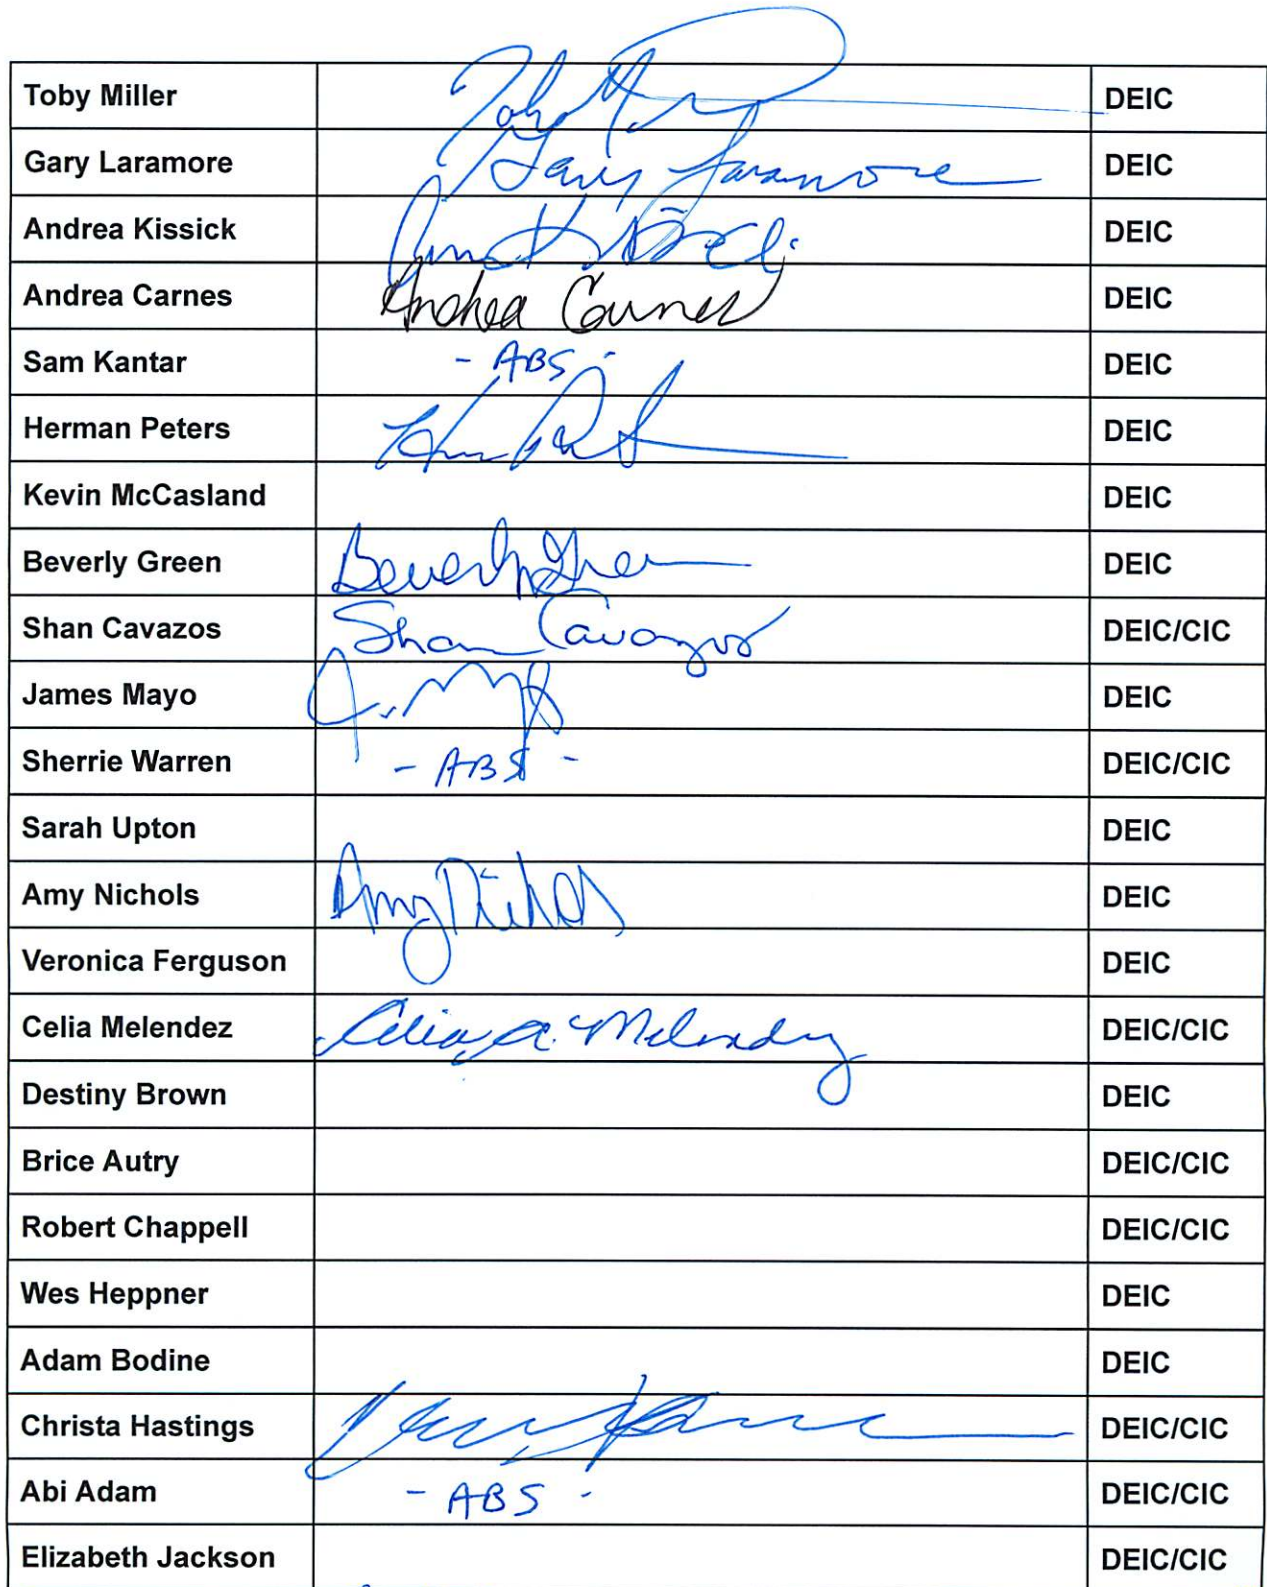 Toby Miller Toby M DEIC
Gary Laramore Gary Laramore DEIC
Andrea Kissick DEIC
Andrea Carnes Andrea Carnes DEIC
Sam Kantar - ABS - DEIC
Herman Peters DEIC
Kevin McCasland DEIC
Beverly Green Beverly Green DEIC
Shan Cavazos Shan Cavazos DEIC/CIC
James Mayo DEIC
Sherrie Warren - ABS - DEIC/CIC
Sarah Upton DEIC
Amy Nichols Amy Nichols DEIC
Veronica Ferguson DEIC
Celia Melendez Celia A. Melendez DEIC/CIC
Destiny Brown DEIC
Brice Autry DEIC/CIC
Robert Chappell DEIC/CIC
Wes Heppner DEIC
Adam Bodine DEIC
Christa Hastings DEIC/CIC
Abi Adam - ABS - DEIC/CIC
Elizabeth Jackson DEIC/CIC